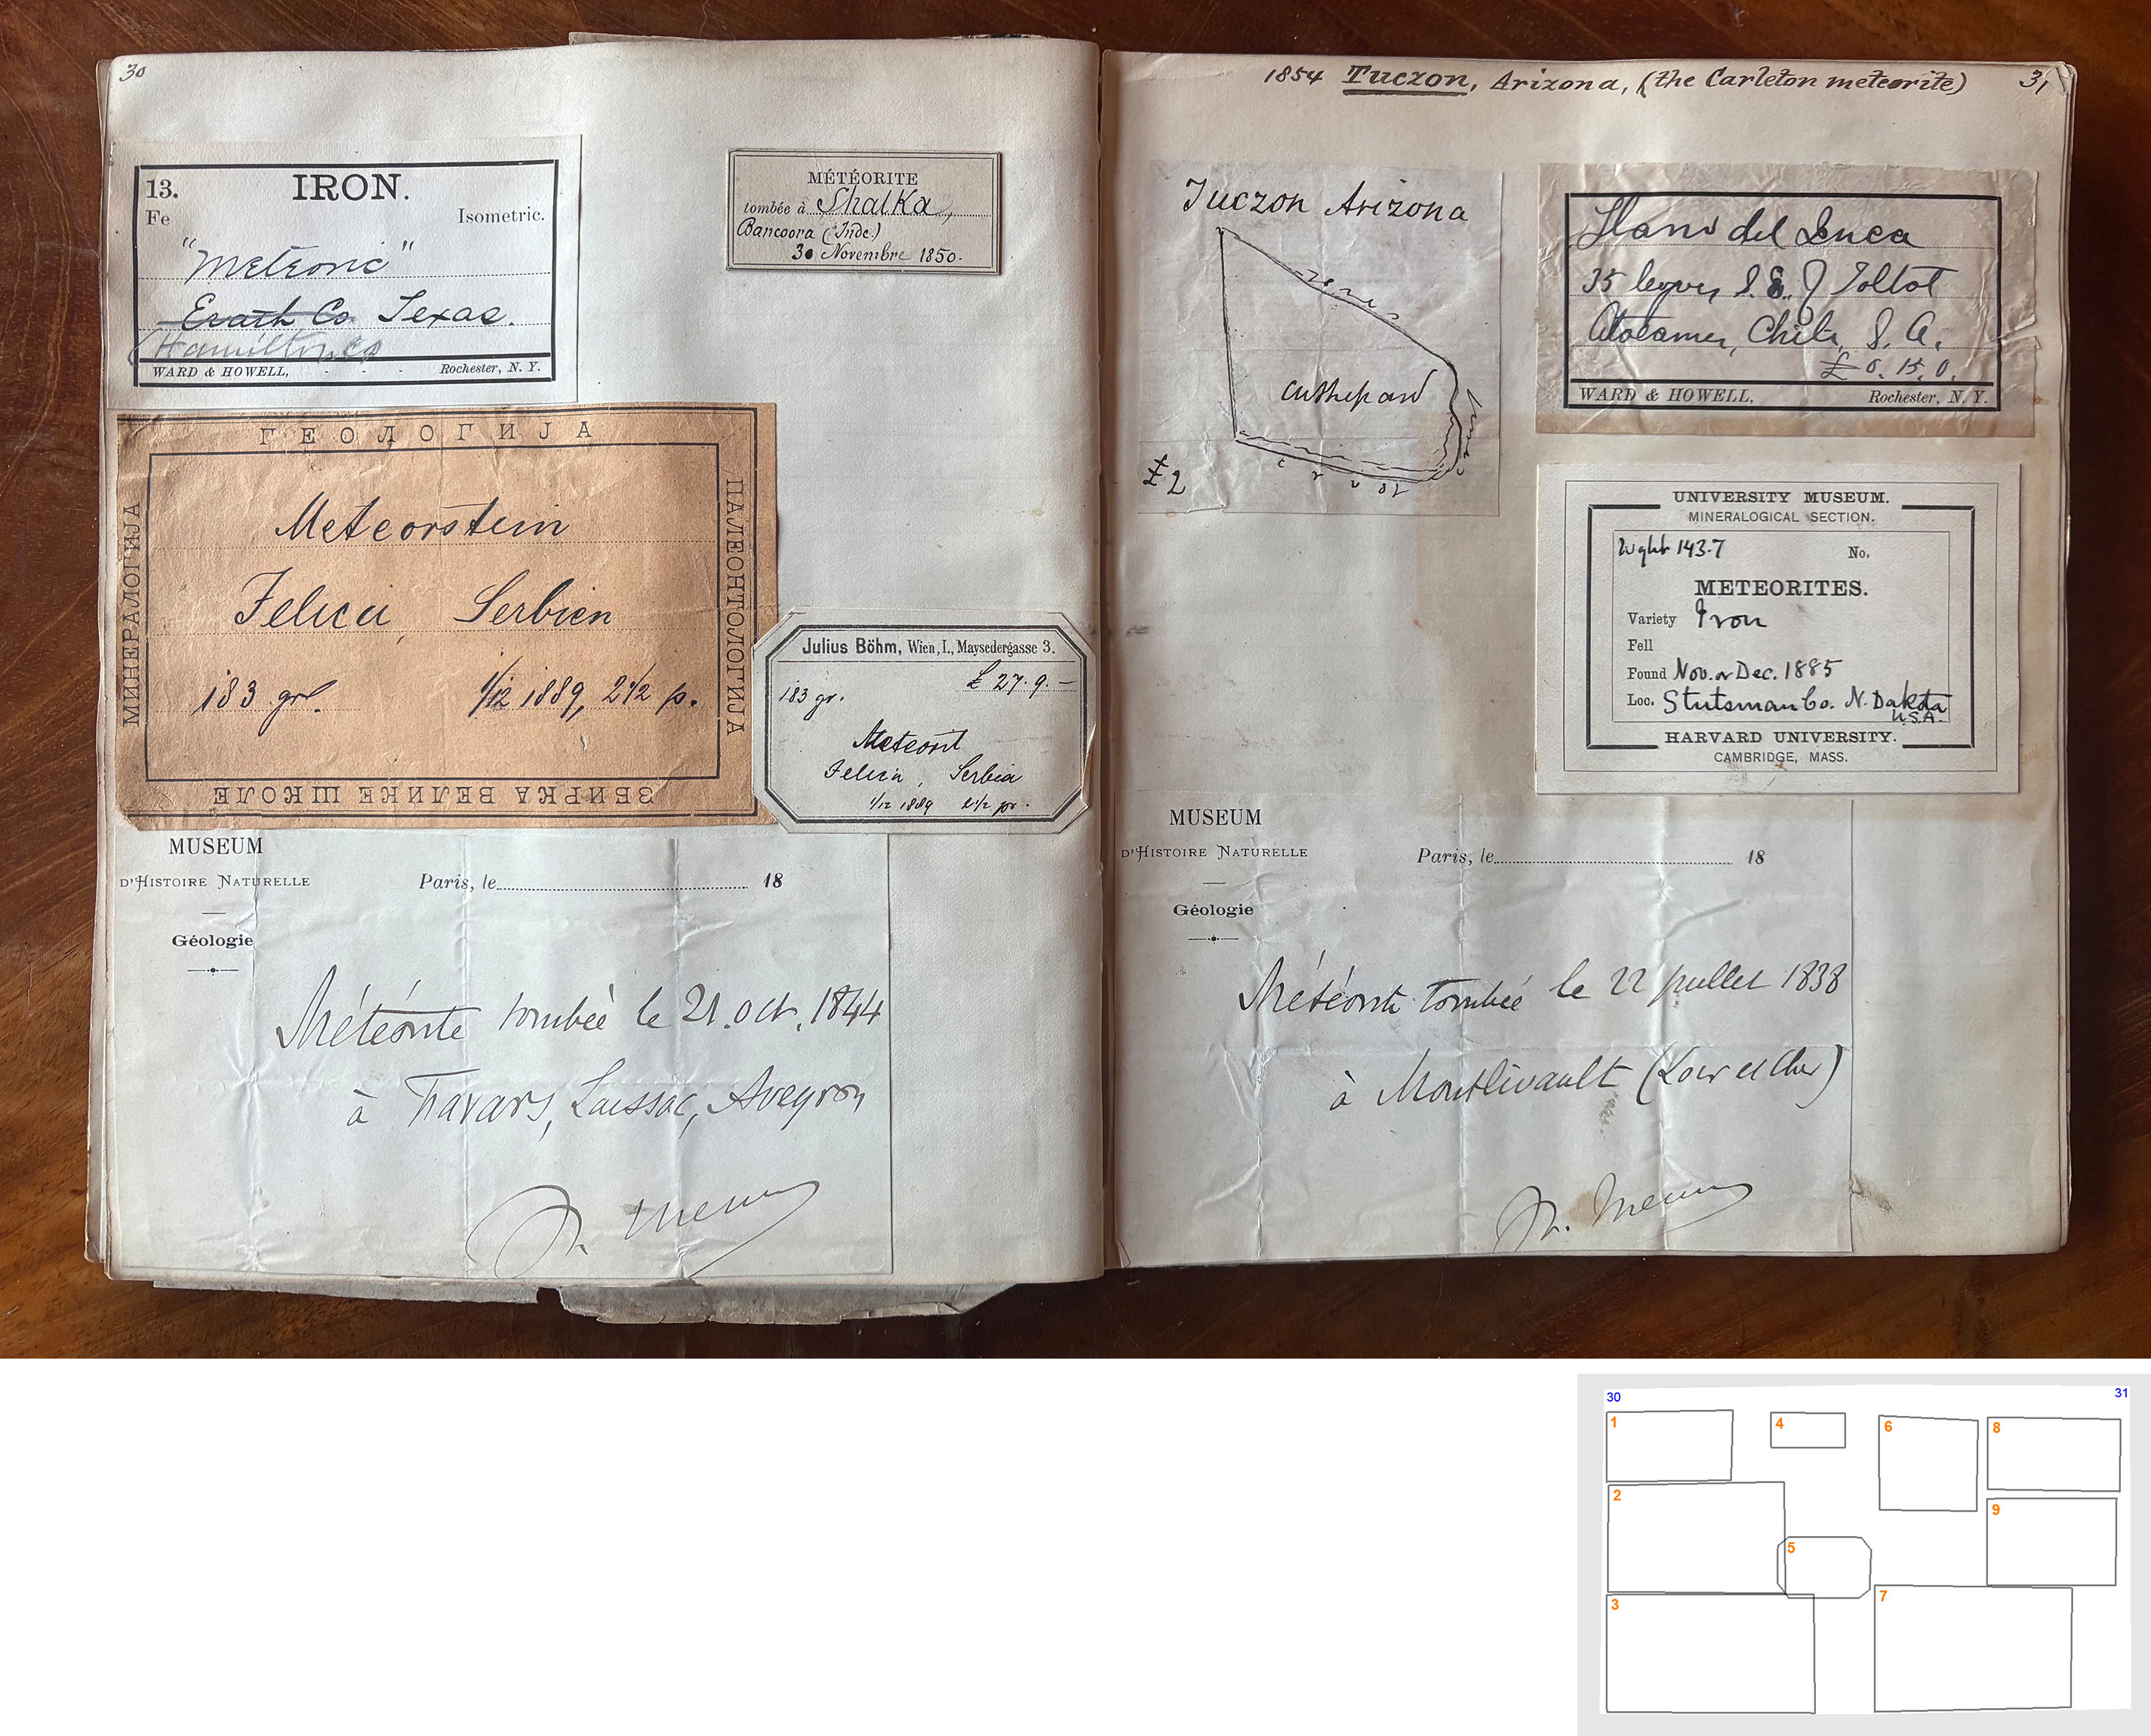 30
13. IRON.
Fe Isometric.
"Meteoric"
Erath Co. Texas.
Hamilton Co
WARD & HOWELL, - - - Rochester, N. Y.
МÉTÉORITE
tombée à Shalka,
Bancoora (Inde.)
30 Novembre 1850.
ГЕОЛОГИЈА
МИНЕРАЛОГИЈА
ПАЛЕОНТОЛОГИЈА
Meteorstein
Jelica, Serbien
183 gr. 1/12 1889, 2 1/2 p.
ЗБИРКА ВЕЛИКЕ ШКОЛЕ
Julius Böhm, Wien, I., Maysedergasse 3.
£ 27. 9. –
183 gr.
Meteorit
Jelica, Serbia
1/12 1889 2 1/2 pr.
MUSEUM
D'HISTOIRE NATURELLE
Paris, le 18
Géologie
Météorite tombée le 21. oct. 1844
à Favars, Laissac, Aveyron
St. Meunier
1854 Tuczon, Arizona, (the Carleton meteorite)
31
Tuczon Arizona
£2
Llano del Inca
35 leagues S. E. of Toltol
Atacama, Chili, S. A.
£ 0. 15. 0.
WARD & HOWELL, Rochester, N. Y.
UNIVERSITY MUSEUM.
MINERALOGICAL SECTION.
Wght 143.7 No.
METEORITES.
Variety Iron
Fell
Found Nov. or Dec. 1885
Loc. Stutsman Co. N. Dakota
U.S.A.
HARVARD UNIVERSITY.
CAMBRIDGE, MASS.
MUSEUM
D'HISTOIRE NATURELLE
Paris, le 18
Géologie
Météorite tombée le 22 juillet 1838
à Montlivault (Loir et Cher)
St. Meunier
30
31
1
4
6
8
2
9
5
3
7